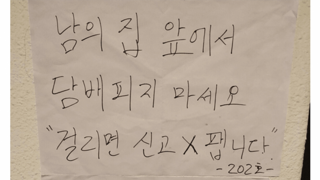 남의 집 앞에서
담배피지 마세요
"걸리면 신고 X 팹니다"
-202호-